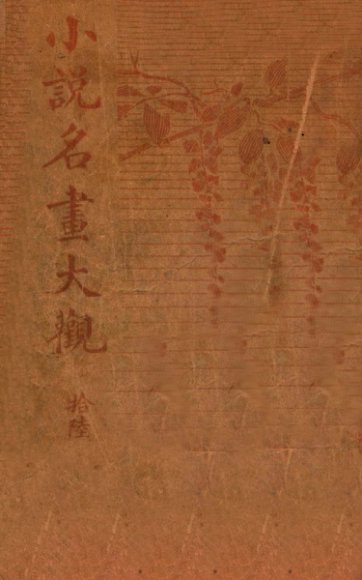 小説名畫大觀
拾陸